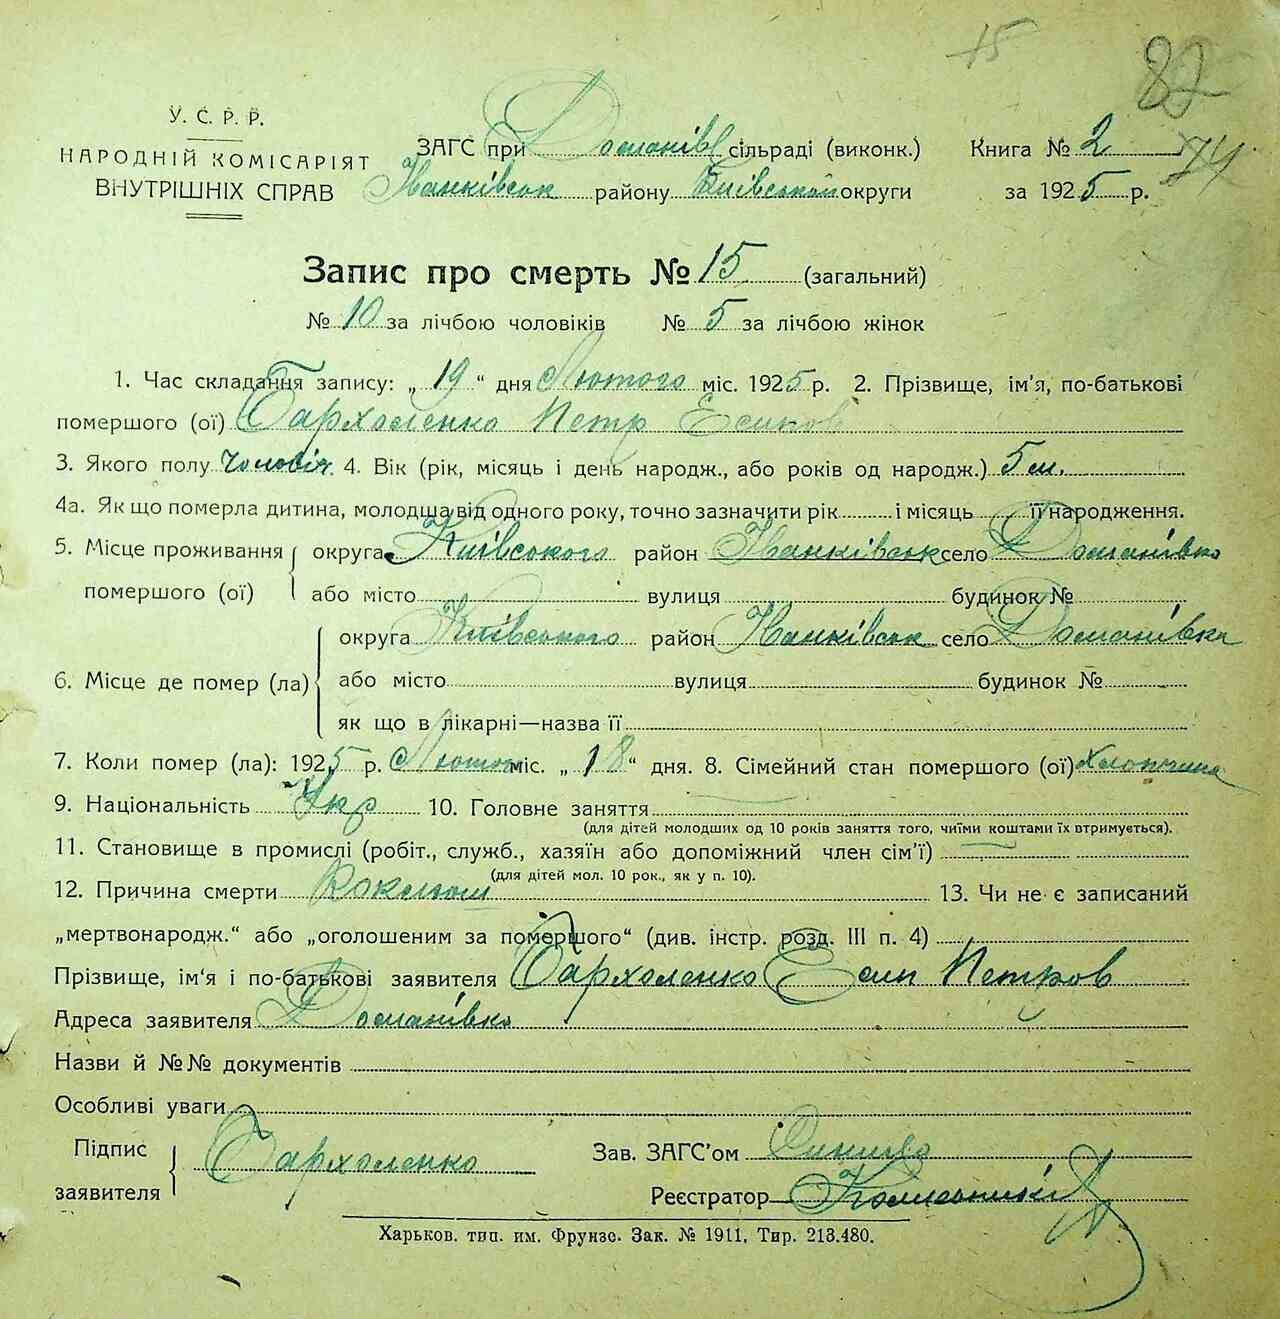 15
82
У. С. Р. Р.
НАРОДНІЙ КОМІСАРІЯТ
ВНУТРІШНІХ СПРАВ
ЗАГС при Доманів сільраді (виконк.) Книга № 2 74
Іванківськ району Київської округи за 1925 р.
Запис про смерть № 15 (загальний)
№ 10 за лічбою чоловіків № 5 за лічбою жінок
1. Час складання запису: „ 19 “ дня Лютого міс. 1925 р. 2. Прізвище, ім’я, по-батькові
помершого (ої) Пархоменко Петр Есипов
3. Якого полу Чоловіч. 4. Вік (рік, місяць і день народж., або років од народж.) 5 м.
4а. Як що померла дитина, молодша від одного року, точно зазначити рік і місяць її народження.
5. Місце проживання помершого (ої) округа Київського район Іванківськ село Доманівка
або місто вулиця будинок №
6. Місце де помер (ла) округа Київського район Іванківськ село Доманівка
або місто вулиця будинок №
як що в лікарні—назва її
7. Коли помер (ла): 1925 р. Лютого міс. „ 18 “ дня. 8. Сімейний стан помершого (ої) Хлопчина
9. Національність Укр 10. Головне заняття
(для дітей молодших од 10 років заняття того, чиїми коштами їх втримується).
11. Становище в промислі (робіт., служб., хазяїн або допоміжний член сім’ї)
(для дітей мол. 10 рок., як у п. 10).
12. Причина смерти Коклюш 13. Чи не є записаний
„мертвонародж.“ або „оголошеним за помершого“ (див. інстр. розд. III п. 4)
Прізвище, ім‘я і по-батькові заявителя Пархоменко Есип Петров
Адреса заявителя Доманівка
Назви й №№ документів
Особливі уваги
Підпис заявителя Пархоменко Зав. ЗАГС’ом
Реєстратор
Харьков. тип. им. Фрунзе. Зак. № 1911, Тир. 213.480.